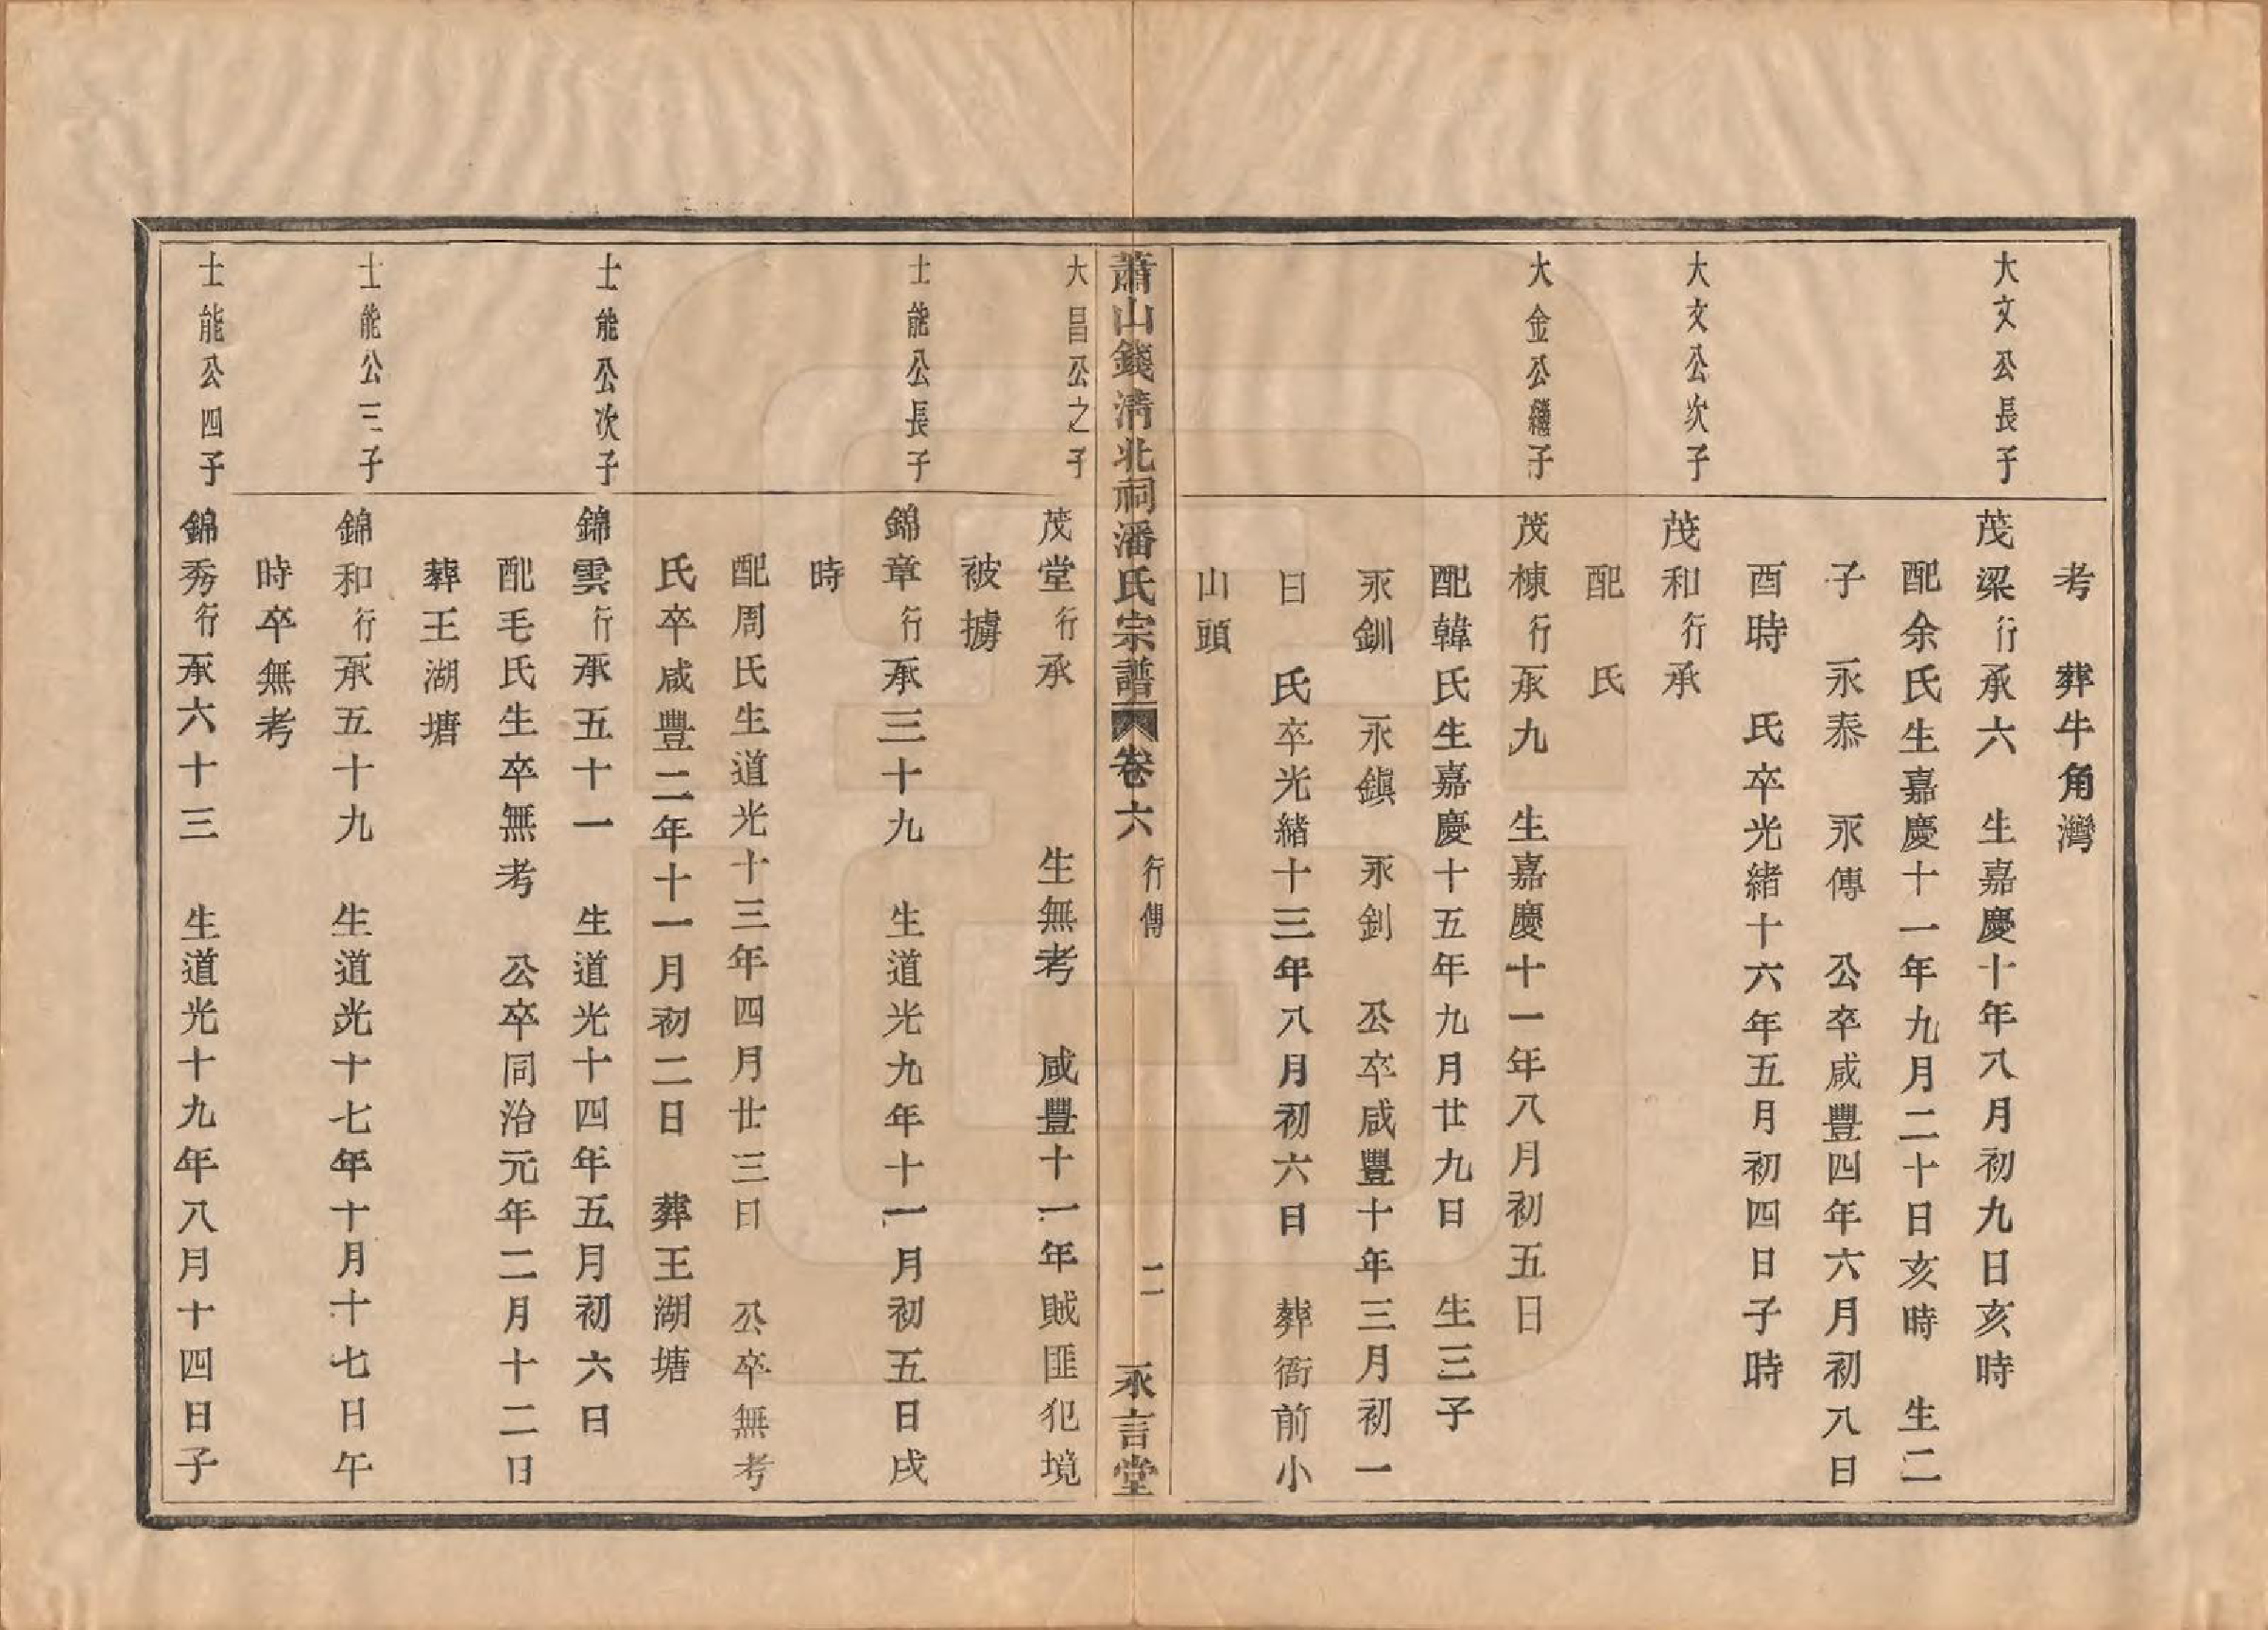 考　葬牛角灣
大文公長子　茂梁行承六　生嘉慶十年八月初九日亥時
配余氏生嘉慶十一年九月二十日亥時　生二
子　永泰　永傳　公卒咸豐四年六月初八日
酉時　氏卒光緒十六年五月初四日子時
大文公次子　茂和行承
配　氏
大金公繼子　茂棟行承九　生嘉慶十一年八月初五日
配韓氏生嘉慶十五年九月廿九日　生三子
永釧　永鎭　永釗　公卒咸豐十年三月初一
日　氏卒光緒十三年八月初六日　葬衙前小
山頭
蕭山錢淸北祠潘氏宗譜　卷六　行傳　二　永言堂
大昌公之子　茂堂行承　　生無考　咸豐十一年賊匪犯境
被擄
士能公長子　錦章行承三十九　生道光九年十一月初五日戌
時
配周氏生道光十三年四月廿三日　公卒無考
氏卒咸豐二年十一月初二日　葬王湖塘
士能公次子　錦雲行承五十一　生道光十四年五月初六日
配毛氏生卒無考　公卒同治元年二月十二日
葬王湖塘
士能公三子　錦和行承五十九　生道光十七年十月十七日午
時卒無考
士能公四子　錦秀行承六十三　生道光十九年八月十四日子